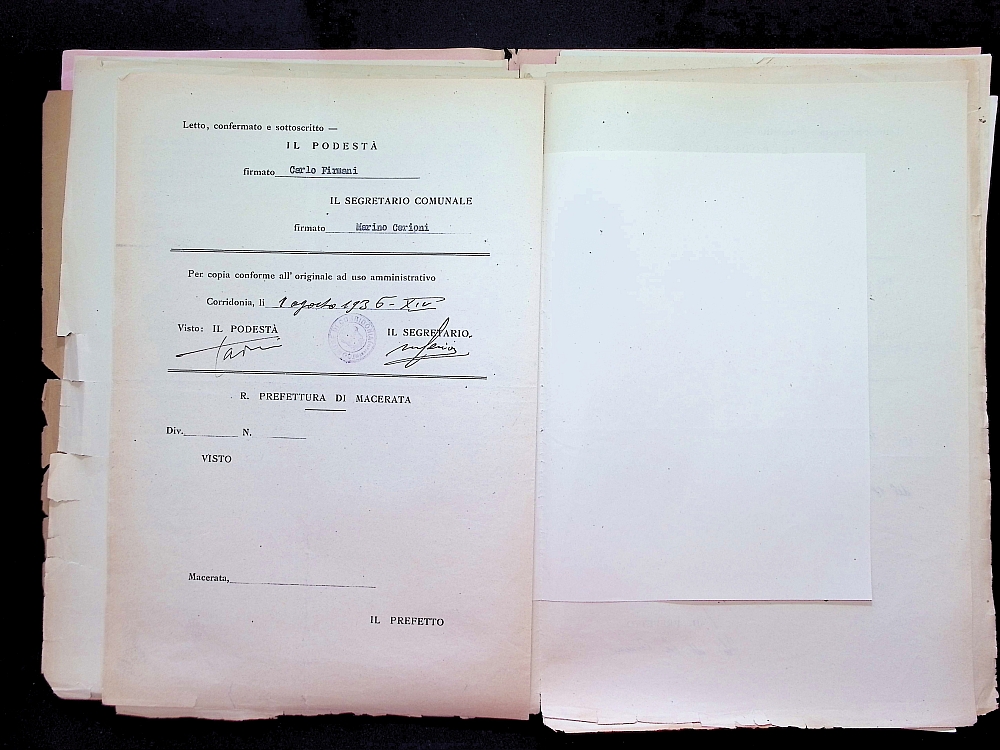 Letto, confermato e sottoscritto —
IL PODESTÀ
firmato Carlo Firmani
IL SEGRETARIO COMUNALE
firmato Marino Carioni
Per copia conforme all'originale ad uso amministrativo
Corridonia, li 1 agosto 1936-XIV°
Visto: IL PODESTÀ
IL SEGRETARIO
R. PREFETTURA DI MACERATA
Div. N.
VISTO
Macerata,
IL PREFETTO